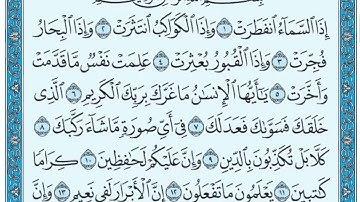 إِذَا ٱلسَّمَآءُ ٱنفَطَرَتْ ۝١ وَإِذَا ٱلْكَوَاكِبُ ٱنتَثَرَتْ ۝٢ وَإِذَا ٱلْبِحَارُ
فُجِّرَتْ ۝٣ وَإِذَا ٱلْقُبُورُ بُعْثِرَتْ ۝٤ عَلِمَتْ نَفْسٌ مَّا قَدَّمَتْ
وَأَخَّرَتْ ۝٥ يَٰٓأَيُّهَا ٱلْإِنسَٰنُ مَا غَرَّكَ بِرَبِّكَ ٱلْكَرِيمِ ۝٦ ٱلَّذِى
خَلَقَكَ فَسَوَّىٰكَ فَعَدَلَكَ ۝٧ فِىٓ أَىِّ صُورَةٍ مَّا شَآءَ رَكَّبَكَ ۝٨
كَلَّا بَلْ تُكَذِّبُونَ بِٱلدِّينِ ۝٩ وَإِنَّ عَلَيْكُمْ لَحَٰفِظِينَ ۝١٠ كِرَامًا
كَٰتِبِينَ ۝١١ يَعْلَمُونَ مَا تَفْعَلُونَ ۝١٢ إِنَّ ٱلْأَبْرَارَ لَفِى نَعِيمٍ ۝١٣ وَإِنَّ